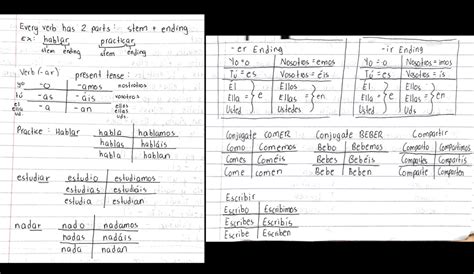 Every verb has 2 parts: stem + ending
ex: hablar practicar
stem ending stem ending
Verb (-ar) present tense:
yo -o -amos nosotros
tú -as -áis vosotros
él ella ud. -a -an ellos ellas Uds.
Practice: Hablar hablo hablamos
hablas habláis
habla hablan
estudiar estudio estudiamos
estudias estudiáis
estudia estudian
nadar nado nadamos
nadas nadáis
nada nadan
-er Ending
Yo = o Nosotros = emos
Tú = es Vosotros = éis
Él Ella Usted = e Ellos Ellas Ustedes = en
-ir Ending
Yo = o Nosotros = imos
Tú = es Vosotros = ís
Él Ella Usted = e Ellos Ellas Uds = en
Conjugate COMER Conjugate BEBER Compartir
Como Comemos Bebo Bebemos Comparto Compartimos
Comes Coméis Bebes Bebéis
Come comen Bebe Beben Comparte Comparten
Escribir
Escribo Escribimos
Escribes Escribís
Escribe Escriben